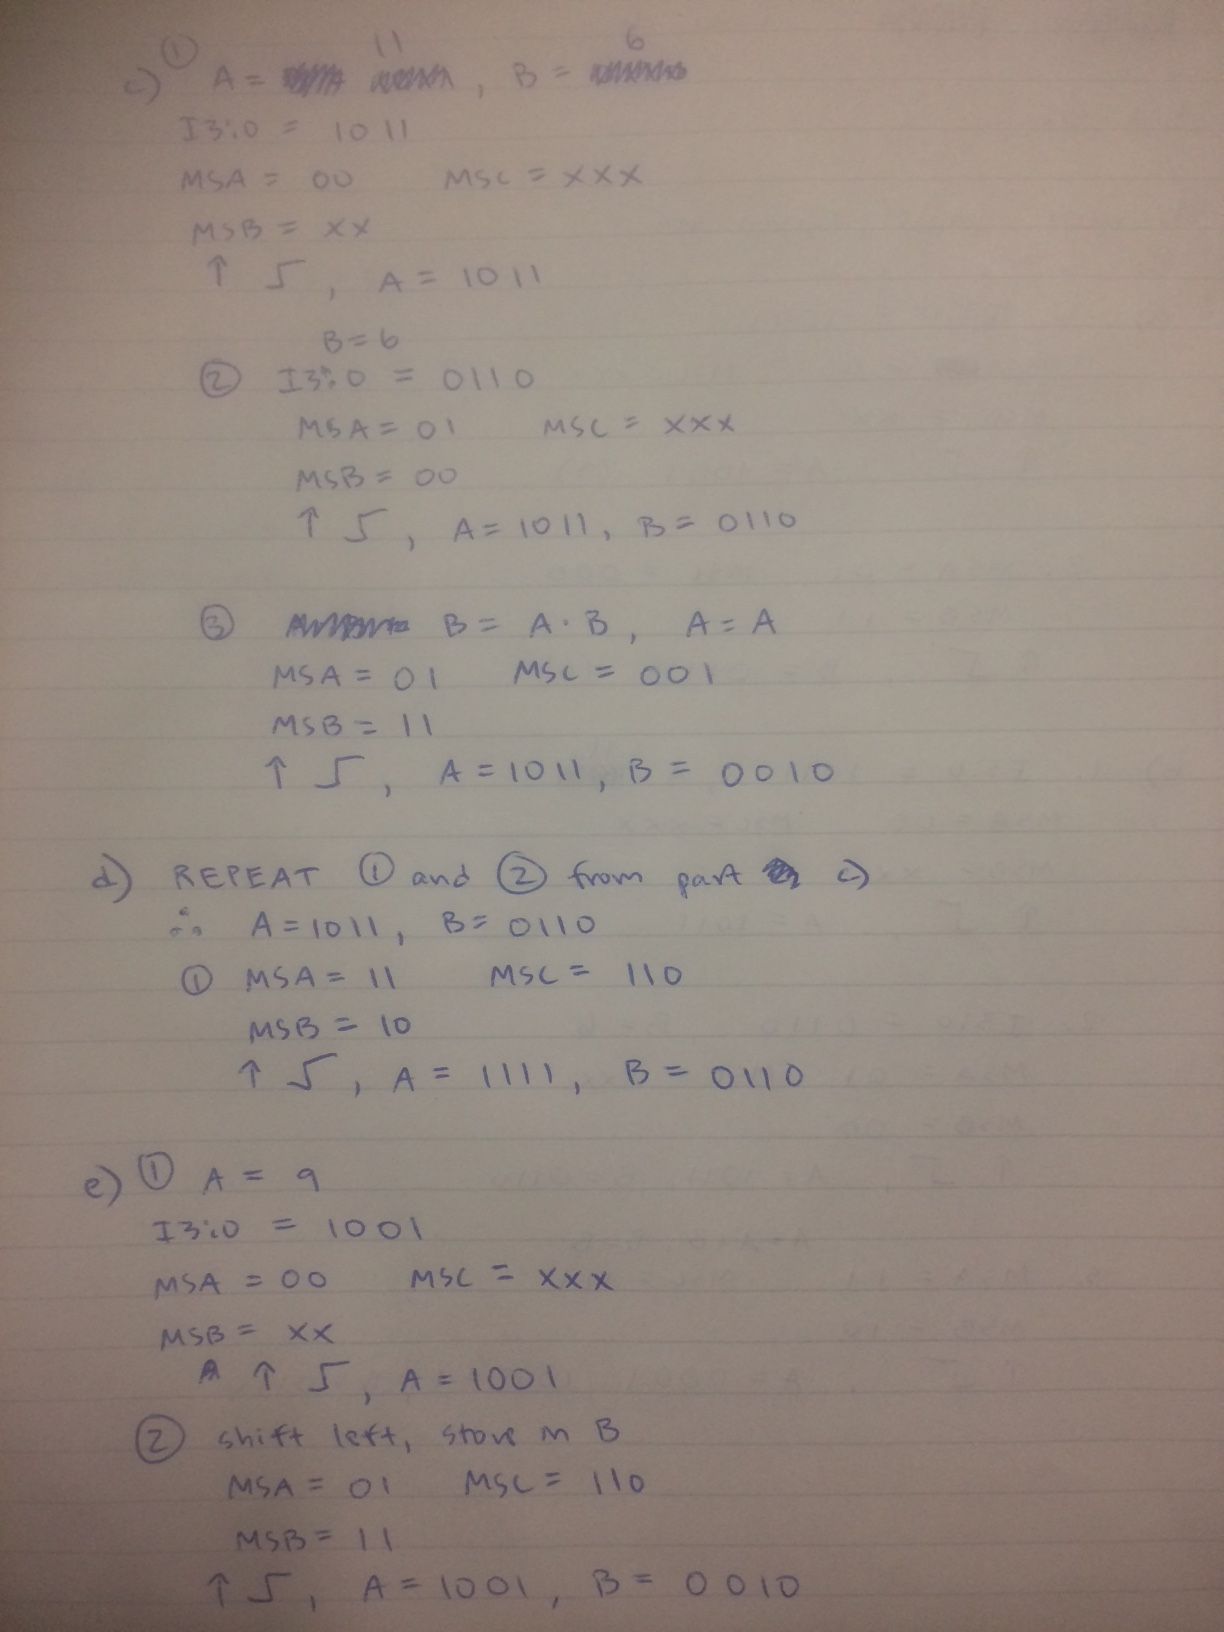 c) ① A = 11 , B = 6
I3:0 = 1011
MSA = 00 MSC = XXX
MSB = XX
↑ ⎍, A = 1011
B = 6
② I3:0 = 0110
MSA = 01 MSC = XXX
MSB = 00
↑ ⎍, A = 1011, B = 0110
③ B = A · B, A = A
MSA = 01 MSC = 001
MSB = 11
↑ ⎍, A = 1011, B = 0010
d) REPEAT ① and ② from part c)
∴ A = 1011, B = 0110
① MSA = 11 MSC = 110
MSB = 10
↑ ⎍, A = 1111, B = 0110
e) ① A = 9
I3:0 = 1001
MSA = 00 MSC = XXX
MSB = XX
A ↑ ⎍, A = 1001
② shift left, store in B
MSA = 01 MSC = 110
MSB = 11
↑ ⎍, A = 1001, B = 0010